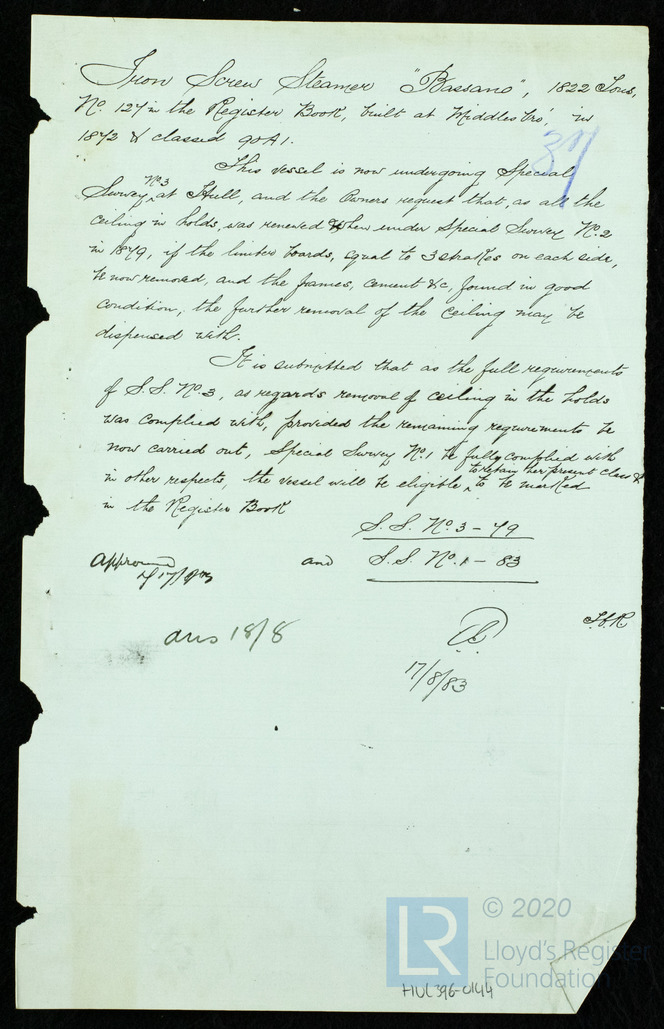 Iron Screw Steamer "Bassano", 1822 Tons,
No. 127 in the Register Book, built at Middlesbro', in
1872 & classed 90A1.
37
This vessel is now undergoing Special
Survey No 3 at Hull, and the Owners request that, as all the
ceiling in holds, was renewed when under Special Survey No. 2
in 1879, if the limber boards, equal to 3 strakes on each side,
be now removed, and the frames, cement &c, found in good
condition, the further removal of the ceiling may be
dispensed with.
It is submitted that as the full requirements
of S.S. No. 3, as regards removal of ceiling in the holds
was complied with, provided the remaining requirements be
now carried out, Special Survey No. 1 be fully complied with
to retain her present class &
in other respects, the vessel will be eligible to be marked
in the Register Book
S.S. No. 3 - 79
and S.S. No. 1 - 83
Approved
17/8/83
ans 18/8
17/8/83
© 2020
LR
Lloyd's Register
Foundation
HUL396-0144